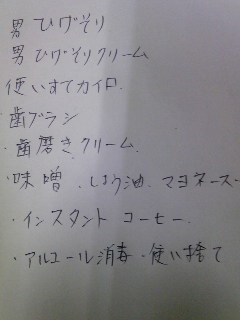 男 ひげそり
男 ひげそりクリーム
使いすてカイロ.
歯ブラシ
・歯磨きクリーム.
・味噌.しょう油.マヨネーズ
・インスタント コーヒー.
・アルコール消毒・使い捨て